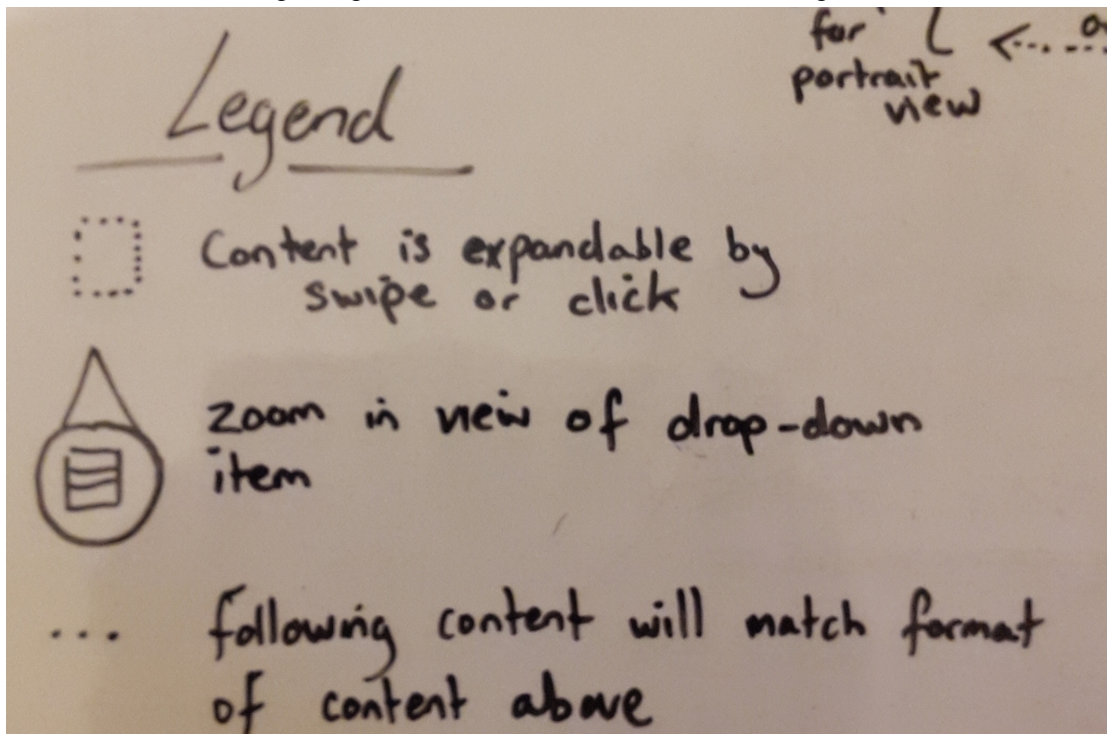 for
portrait
view
Legend
Content is expandable by
swipe or click
zoom in view of drop-down
item
... following content will match format
of content above